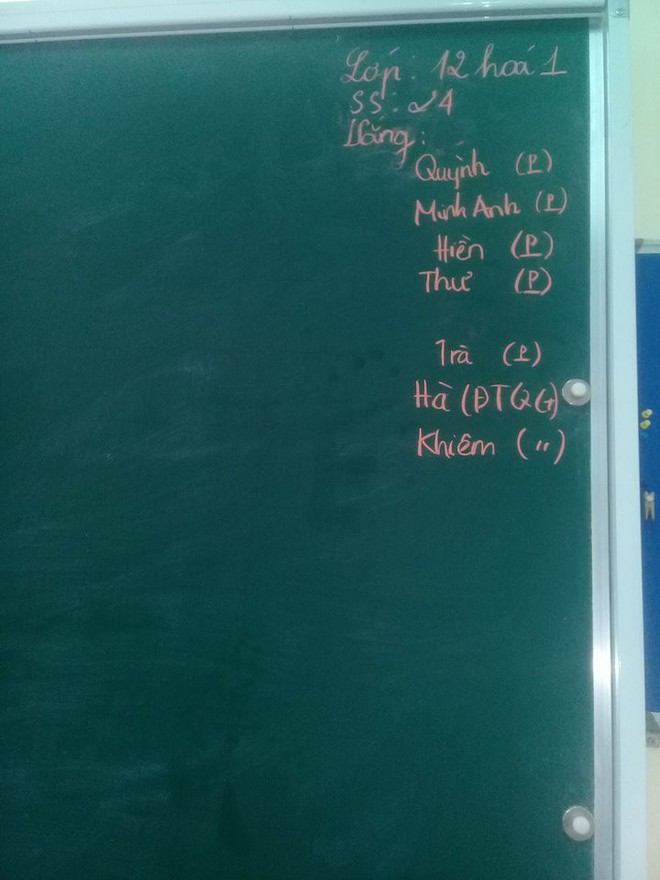 Lớp: 12 hoá 1
SS: 24
Vắng:
Quỳnh (P)
Minh Anh (P)
Hiền (P)
Thư (P)
Trà (P)
Hà (ĐTQG)
Khiêm (")